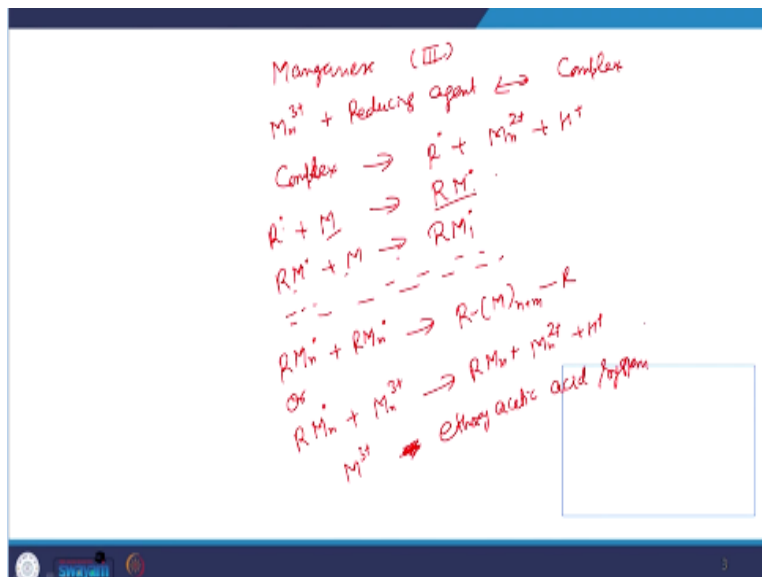 Manganese (III)
Mn³⁺ + Reducing agent ↔ Complex
Complex → R• + Mn²⁺ + H⁺
R• + M → RM•
RM• + M → RM₁•
RMn• + RMn• → R-(M)n+m-R
or
RMn• + Mn³⁺ → RMn + Mn²⁺ + H⁺
M³⁺ ethoxy acetic acid system
swayam
3